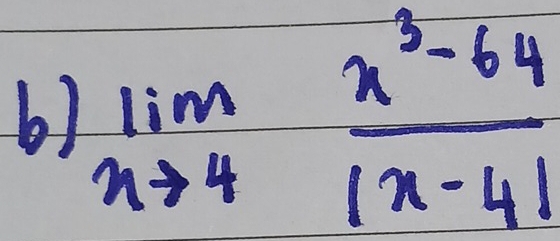 b) lim x→4 x³-64 / |x-4|